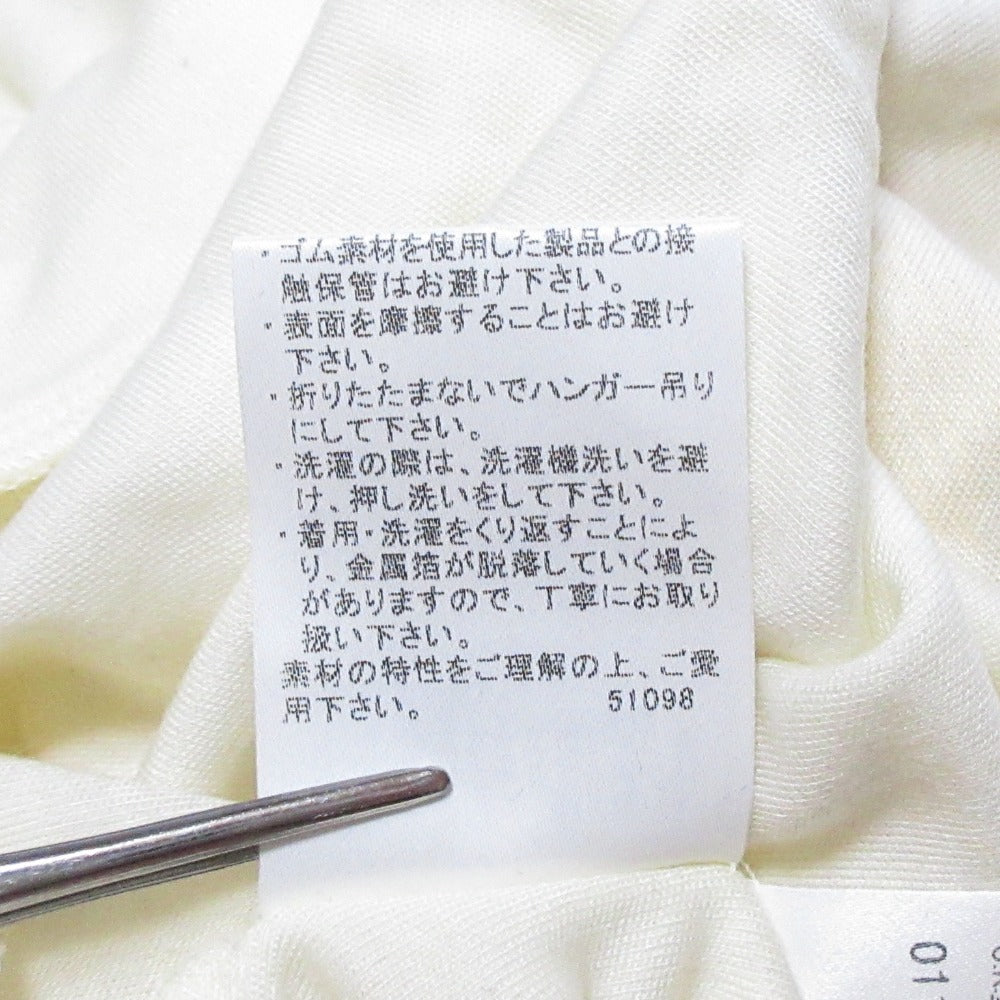 ・ゴム素材を使用した製品との接
触保管はお避け下さい。
・表面を摩擦することはお避け
下さい。
・折りたたまないでハンガー吊り
にして下さい。
・洗濯の際は、洗濯機洗いを避
け、押し洗いをして下さい。
・着用・洗濯をくり返すことによ
り、金属箔が脱落していく場合
がありますので、丁寧にお取り
扱い下さい。
素材の特性をご理解の上、ご愛
用下さい。 51098
01